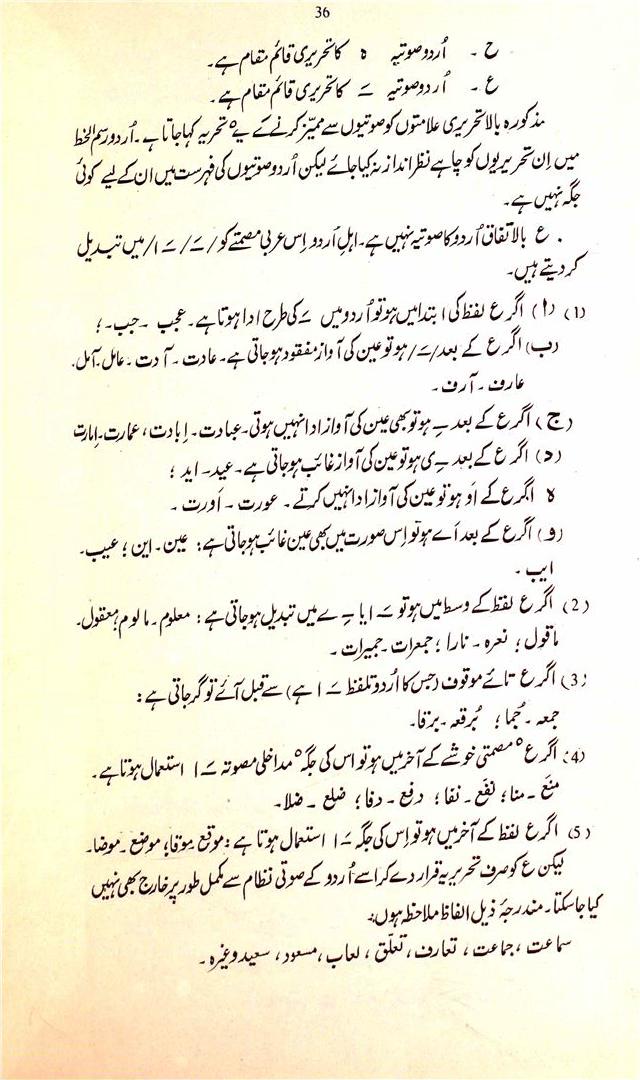 36
ح ۔ اُردو صوتیہ ہ کا تحریری قائم مقام ہے۔
ع ۔ اُردو صوتیہ ـَ کا تحریری قائم مقام ہے۔
مذکورہ بالا تحریری علامتوں کو صوتیوں سے ممیّز کرنے کے لیے °تحریہ کہا جاتا ہے۔ اُردو رسم الخط
میں اِن تحریریوں کو چاہے نظر انداز نہ کیا جائے لیکن اُردو صوتیوں کی فہرست میں ان کے لیے کوئی
جگہ نہیں ہے۔
ع بالاتفاق اُردو کا صوتیہ نہیں ہے۔ اہلِ اُردو اِس عربی مصمتے کو /ـَ/ ـَ ا/ میں تبدیل
کر دیتے ہیں۔
(1) (ا) اگر ع لفظ کی ابتدا میں ہو تو اُردو میں ـَ کی طرح ادا ہوتا ہے۔ عجب ۔ جب۔ ؛
(ب) اگر ع کے بعد /ـَ/ ہو تو عین کی آواز مفقود ہو جاتی ہے۔ عادت ۔ آدت ۔ عامل۔ آمل۔
عارف ۔ آرف ۔
(ج) اگر ع کے بعد ـِ ہو تو بھی عین کی آواز ادا نہیں ہوتی۔ عبادت ۔ اِبادت ، عمارت ۔ اِمارت
(د) اگر ع کے بعد ـِ ی ہو تو عین کی آواز غائب ہو جاتی ہے۔ عید ۔ اید ؛
ہ اگر ع کے اَو ہو تو عین کی آواز ادا نہیں کرتے ۔ عورت ۔ اَورت ۔
(و) اگر ع کے بعد اَے ہو تو اِس صورت میں بھی عین غائب ہو جاتی ہے: عین۔ این ؛ عیب۔
ایب ۔
(2) اگر ع لفظ کے وسط میں ہو تو ـَ ا یا ـِ ے میں تبدیل ہو جاتی ہے : معلوم ۔ مالوم ؛ معقول۔
ماقول ؛ نعرہ ۔ نارا ؛ جمعرات ۔ جمیرات ۔
(3) اگر ع تائے موقوف (جس کا اُردو تلفظ ـَ ا ہے) سے قبل آئے تو گر جاتی ہے :
جمعہ ۔ جُما ؛ بُرقعہ ۔ برقا۔
(4) اگر ع °مصمتی خوشے کے آخر میں ہو تو اس کی جگہ °مداخلی مصوتہ ـَ ا استعمال ہوتا ہے۔
منَع ۔ منا ؛ نفَع ۔ نفا ؛ دفع ۔ دفا ؛ ضلع ۔ ضلا۔
(5) اگر ع لفظ کے آخر میں ہو تو اِس کی جگہ ـَ ا استعمال ہوتا ہے : موقع ۔ موقا؛ موضع ۔ موضا۔
لیکن ع کو صرف تحریریہ قرار دے کر اسے اُردو کے صوتی نظام سے مکمل طور پر خارج بھی نہیں
کیا جا سکتا۔ مندرجۂ ذیل الفاظ ملاحظہ ہوں:
سماعت ، جماعت ، تعارف ، تعلّق ، لعاب ، مسعود ، سعید وغیرہ ۔